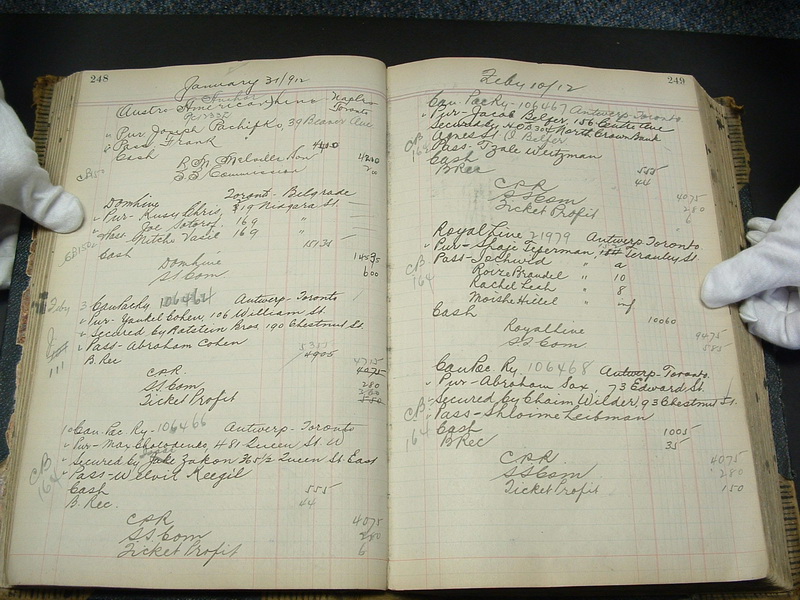 248
January 31/912
Austro Americana Line Naples
Toronto
" Pur Joseph Pachifko, 39 Beaver Ave
" Pass Frank
Cash 4400
R.M. Melville Son 4200
S.S Commission 200
Domline Toront- Belgrade
" Pur- Kusy Chris, 19 Niagara St.
" Pass. Joe 169 "
" Mitcho Vasil 169 "
Cash 15134
Domline 14535
SS Com 600
Feby 3 Can Pac Ry 106464 Antwerp- Toronto
" Pur- Yankel Cohen, 106 William St.
" Secured by Rotstein Bros, 190 Chestnut St.
" Pass- Abraham Cohen
B. Rec 4905 4715
CPR. 4075
SS. Com 280
Ticket Profit
10 Can. Pac Ry- 106466 Antwerp- Toronto
" Pur- Max 481 Queen St. W
" Secured by Zakon 365½ Queen St. East
" Pass- Welvil Keegil
Cash 555
B. Rec. 44
CPR 4075
SS. Com 280
Ticket Profit 6
CB
164
249
Feby 10/12
Can. Pac Ry- 106467 Antwerp- Toronto
" Pur- Jacob Belfer, 156 Centre Ave
Secured by North Crown Bank
Agness Belfer
Pass- Weitzman
Cash 555
B Rec 44
CPR 4075
SS Com 280
Ticket Profit 6
Royal Line 21979 Antwerp Toronto
" Pur- Teperman, Terauley St.
" Pass- " a
Roize Brandel " 10
Rachel Leah " 8
Moishe Hillel " inf
Cash 10060
Royal line 9475
SS Com 585
CB
164
Can Pac Ry. 106468 Antwerp- Toronto.
" Pur- Abraham Sax, 73 Edward St.
" Secured by Chaim Wilder, 93 Chestnut St.
" Pass- Shloime Leibman
Cash 1005
B Rec 35
CPR 4075
SS Com 280
Ticket Profit 150
CB
164